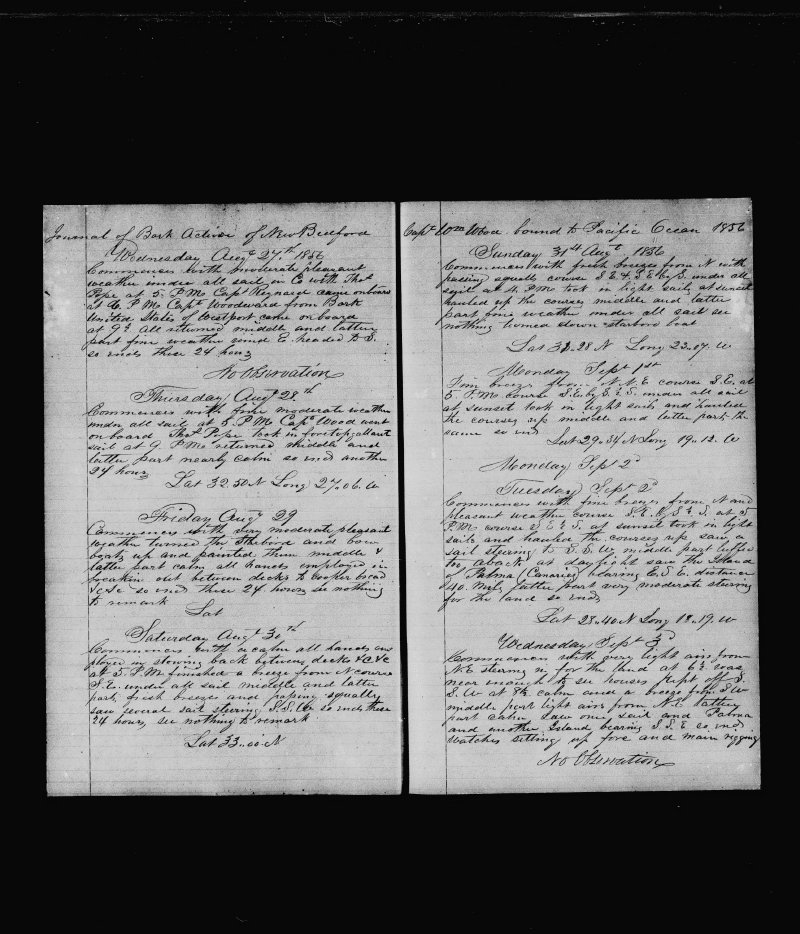 Journal of Bark Active of New Bedford
Wednesday Augt 27th 1856
Commences with moderate pleasant
weather under all sail in Co with Thos
Pope at 5. P.M. Capt Reynard came onboard
at 6. P.M. Capt Woodward from Bark
United States of Westport came on board
at 9½ all returned middle and latter
part fine weather wind E. headed to S.
so ends these 24 hours
No Observation
Thursday Augt 28th
Commences with fine moderate weather
under all sail at 5. P.M. Capt Wood went
onboard Thos Pope took in foretopgallant
sail at 9. P.M. returned middle and
latter part nearly calm so ends another
24 hours
Lat 32.50 N Long 27.06. W
Friday Augt 29
Commences with very moderate pleasant
weather turned the Starbord and bow
boats up and painted them middle &
latter part calm all hands employed in
breakin out between decks to cooper bread
&c &c so ends these 24 hours, see nothing
to remark
Lat
Saturday Augt 30th
Commences with a calm all hands em
ployed in stowing back between decks &c &c
at 5. P.M. finished a breeze from N course
S.E. under all sail middle and latter
part fresh breezes and passing squally
saw several sail steering S.S.W. so ends these
24 hours, see nothing to remark
Lat 33..00 N
Capt Wm Wood bound to Pacific Ocean 1856
Sunday 31st Augt 1856
Commences with fresh breezes from N with
passing squalls course S.E & S.E by S. under all
sail at 4. P.M. took in light sails at sunset
hauled up the courses middle and latter
part fine weather under all sail see
nothing turned down starbord boat
Lat 31.28 N Long 22.07. W
Monday Sept 1st
Fine breezes from N.E course S.E. at
5. P.M. course S.E. by S. & S. under all sail
at sunset took in light sails and hauled
the courses up middle and latter part the
same so ends
Lat 29.34 N Long 19..12. W
Monday Sept 2d
Tuesday Sept 2d
Commences with fine breezes from N and
pleasant weather course S.E. by S & S. at 5
P.M. course S.E & S. at sunset took in light
sails and hauled the courses up saw a
sail steering to S.S.W. middle part luffed
too, aback at daylight saw the Island
of Palma (Canaries) bearing E.S.E. distance
40 miles latter part very moderate steering
for the land so ends
Lat 28..40 N Long 18..19. W
Wednesday Sept 3d
Commences with very light airs from
N.E stering in for the land at 6½ was
near enough to see houses kept off S.
S.W at 8½ calm and a breeze from SW
middle part light airs from N.E latter
part calm saw one sail and Palma
and another Island bearing S.S.E so ends
watches setting up fore and main rigging
No Observation